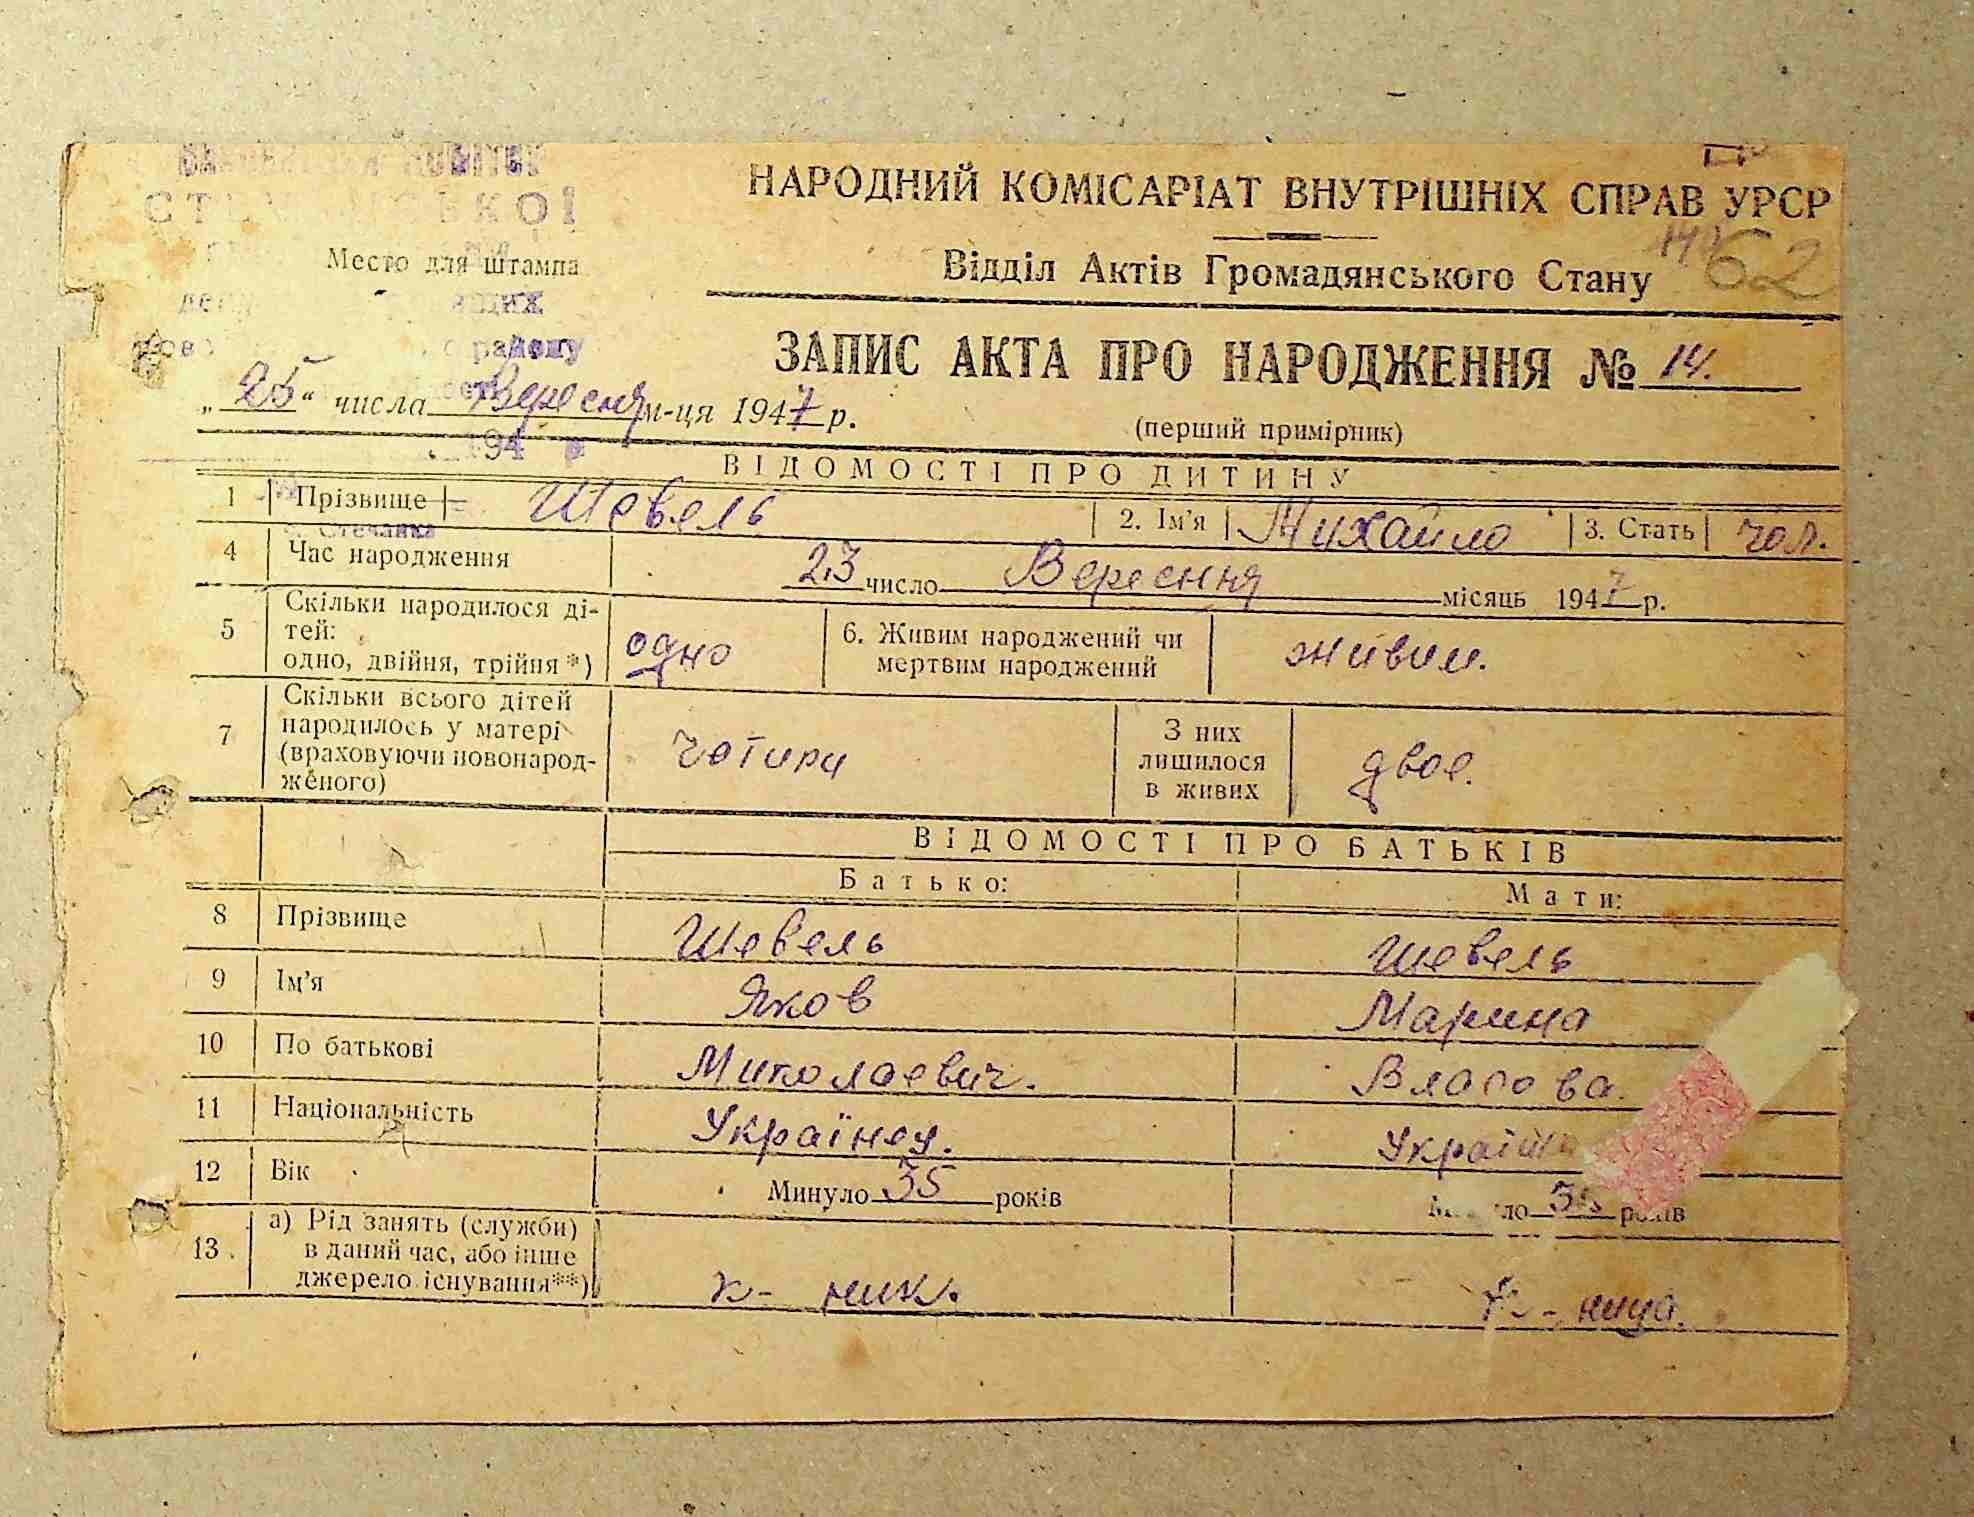 НАРОДНИЙ КОМІСАРІАТ ВНУТРІШНІХ СПРАВ УРСР
Відділ Актів Громадянського Стану
62
Место для штампа
району
ЗАПИС АКТА ПРО НАРОДЖЕННЯ № 14.
„25“ числа Вересня м-ця 1947 р.
(перший примірник)
194 р
ВІДОМОСТІ ПРО ДИТИНУ
1 Прізвище Шевель 2. Ім'я Михайло 3. Стать чол.
с. Стечанка
4 Час народження 23 число Вересня місяць 1947 р.
5 Скільки народилося ді-
тей:
одно, двійня, трійня*) одно 6. Живим народжений чи
мертвим народжений живим.
7 Скільки всього дітей
народилось у матері
(враховуючи новонарод-
женого) чотири З них
лишилося
в живих двое.
ВІДОМОСТІ ПРО БАТЬКІВ
Батько: Мати:
8 Прізвище Шевель Шевель
9 Ім'я Яков Марина
10 По батькові Миколаевич. Власова.
11 Національність Українец. Україн
12 Вік Минуло 35 років ло 35 років
13. а) Рід занять (служби)
в даний час, або інше
джерело існування**) к- ник. к-ница.